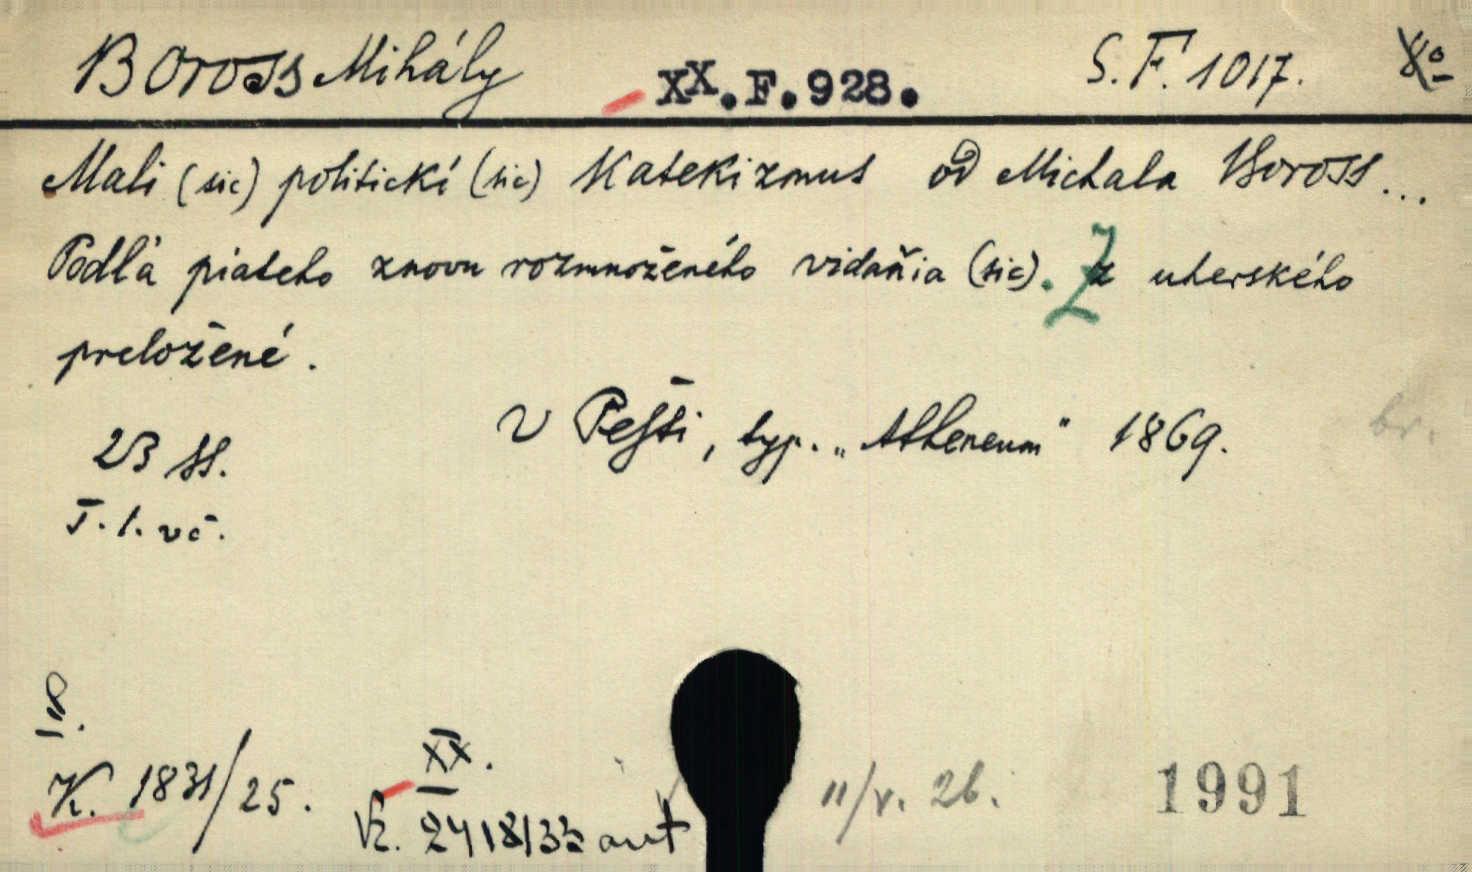 Boross Mihály XX.F.928. S.F. 1017. 8°
Mali (sic) politickí (sic) Katekizmus od Michala Boross...
Podľa piateho znovu rozmnoženého vidaňia (sic). Z uherského
preložené.
V Pešti, typ. „Atheneum" 1869. br.
23 ss.
8.
K. 1831/25.
XX.
K. 2418/33 aut
11/v. 26.
1991